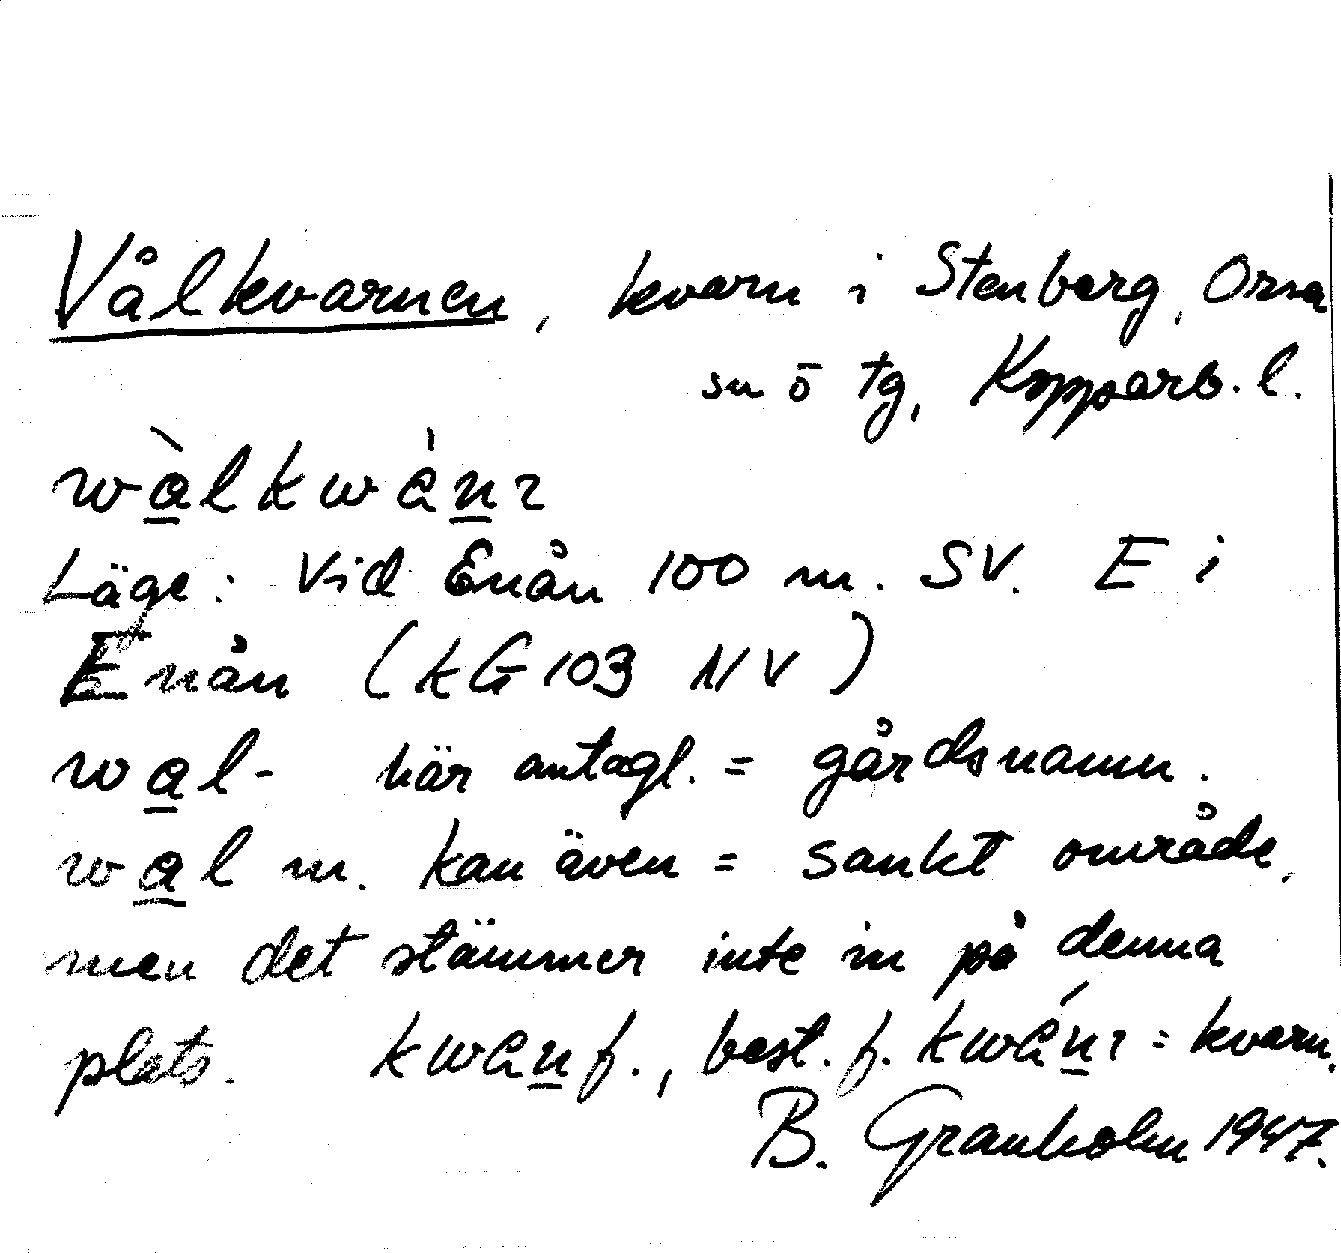 Vålkvarnen, kvarn i Stenberg, Orsa
sn ō tg, Kopparb. l.
wàlkwánɿ
Läge: Vid Enån 100 m. SV. E i
Enån (kG 103 NV)
wal- här antagl. = gårdsnamn.
wal m. kan även = sankt område,
men det stämmer inte in på denna
plats. kwan f., best. f. kwánɿ = kvarn.
B. Granholm 1947.